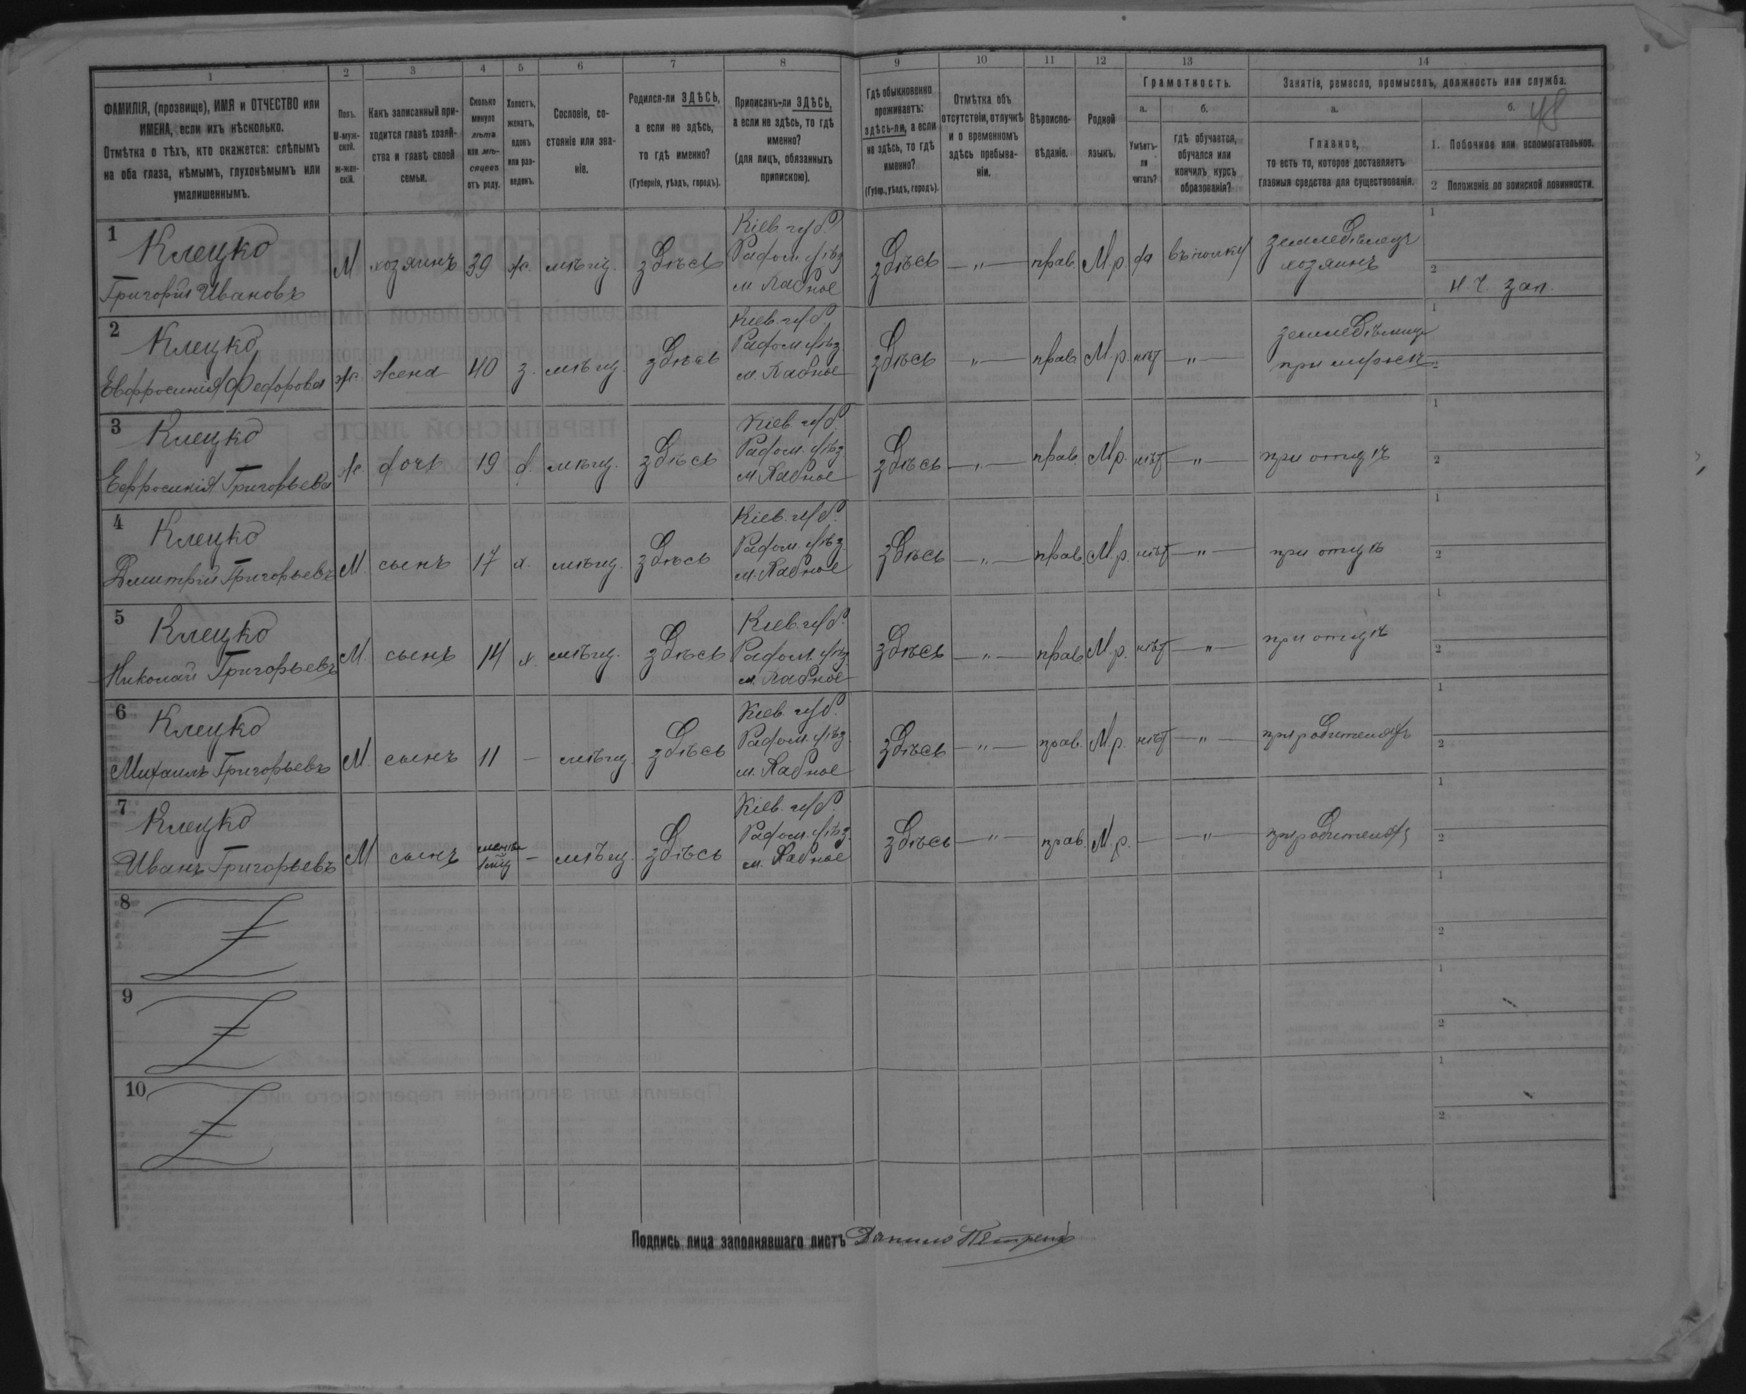 1 2 3 4 5 6 7 8 9 10 11 12 13 14
ФАМИЛІЯ, (прозвище), ИМЯ и ОТЧЕСТВО или ИМЕНА, если ихъ нѣсколько.
Отмѣтка о тѣхъ, кто окажется: слѣпымъ на оба глаза, нѣмымъ, глухонѣмымъ или умалишеннымъ.
Полъ.
М-муж-
ской.
Ж-жен-
скій.
Какъ записанный при-
ходится главѣ хозяй-
ства и главѣ своей
семьи.
Сколько
минуло
лѣтъ
или мѣ-
сяцевъ
отъ роду.
Холостъ,
женатъ,
вдовъ
или раз-
веденъ.
Сословіе, со-
стояніе или зва-
ніе.
Родился-ли ЗДѢСЬ,
а если не здѣсь,
то гдѣ именно?
(Губернія, уѣздъ, городъ).
Приписанъ-ли ЗДѢСЬ,
а если не здѣсь, то гдѣ
именно?
(для лицъ, обязанныхъ
припискою).
Гдѣ обыкновенно
проживаетъ:
здѣсь-ли, а если
не здѣсь, то гдѣ
именно?
(Губер., уѣздъ, городъ).
Отмѣтка объ
отсутствіи, отлучкѣ
и о временномъ
здѣсь пребыва-
ніи.
Вѣроиспо-
вѣданіе.
Родной
языкъ.
Грамотность.
а.
Умѣетъ-
ли
читать?
б.
гдѣ обучается,
обучался или
кончилъ курсъ
образованія?
Занятія, ремесло, промыселъ, должность или служба.
а.
Главное,
то есть то, которое доставляетъ
главныя средства для существованія.
б.
48
1. Побочное или вспомогательное.
2 Положеніе по воинской повинности.
1 Клецко
Григорій Ивановъ М хозяинъ 39 ж. мѣщ. здѣсь Кіев. губ. Радом. уѣз. здѣсь — " — прав. М.р. да въ полку земледѣлец хозяинъ
Н. Ч. зап.
2 Клецко
Евфросинія Федорова ж. жена 40 з. мѣщ. здѣсь Кіев. губ. Радом. уѣз. здѣсь — " — прав. М.р. нѣт — " —
3 Клецко
Евфросинія Григорьева ж. дочь 19 д. мѣщ. здѣсь Кіев. губ. Радом. уѣз. здѣсь — " — прав. М.р. нѣт — " — при отцѣ
4 Клецко
Дмитрій Григорьевъ М сынъ 17 х. мѣщ. здѣсь Кіев. губ. Радом. уѣз. здѣсь — " — прав. М.р. нѣт — " — при отцѣ
5 Клецко
Николай Григорьевъ М. сынъ 14 х. мѣщ. здѣсь Кіев. губ. Радом. уѣз. здѣсь — " — прав. М.р. нѣт — " — при отцѣ
6 Клецко
Михаилъ Григорьевъ М. сынъ 11 — мѣщ. здѣсь Кіев. губ. Радом. уѣз. здѣсь — " — прав. М.р. нѣт — " — при родителяхъ
7 Клецко
Иванъ Григорьевъ М сынъ — мѣщ. здѣсь Кіев. губ. Радом. уѣз. здѣсь — " — прав. М.р. — " — при родителях
8
9
10
Подпись лица заполнявшаго листъ Данило